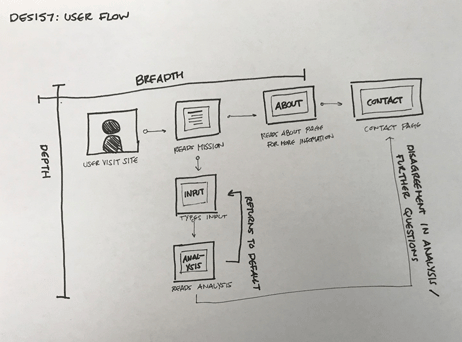 DES157: USER FLOW
BREADTH
DEPTH
USER VISIT SITE
READS MISSION
ABOUT
READS ABOUT PAGE
FOR MORE INFORMATION
CONTACT
CONTACT PAGE
INPUT
TYPES INPUT
ANAL-
YSIS
READS ANALYSIS
RETURNS TO DEFAULT
DISAGREEMENT IN ANALYSIS /
FURTHER
QUESTIONS